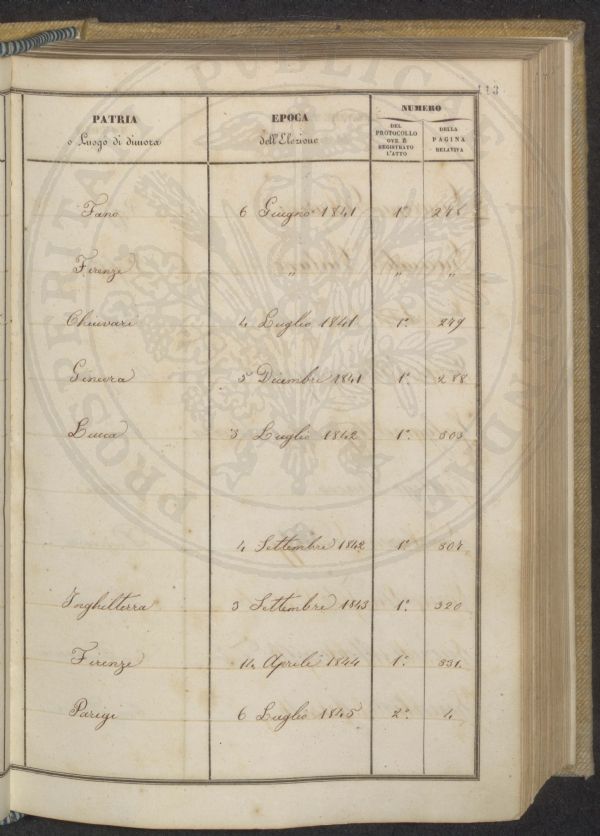 113
PATRIA
o Luogo di dimora
EPOCA
dell'Elezione
NUMERO
DEL
PROTOCOLLO
OVE È
REGISTRATO
L'ATTO
DELLA
PAGINA
RELATIVA
Fano 6 Giugno 1841 1.º
Firenze „ „ „
Chiavari 4 Luglio 1841 1.º 279
Ginevra 5 Dicembre 1841 1.º 288
Lucca 3 Luglio 1842 1.º 303
4 Settembre 1842 1.º 307
Inghilterra 3 Settembre 1843 1.º 320
Firenze 14 Aprile 1844 1.º 331.
Parigi 6 Luglio 1845 2.º 4
PROSPERITATI PUBLICAE